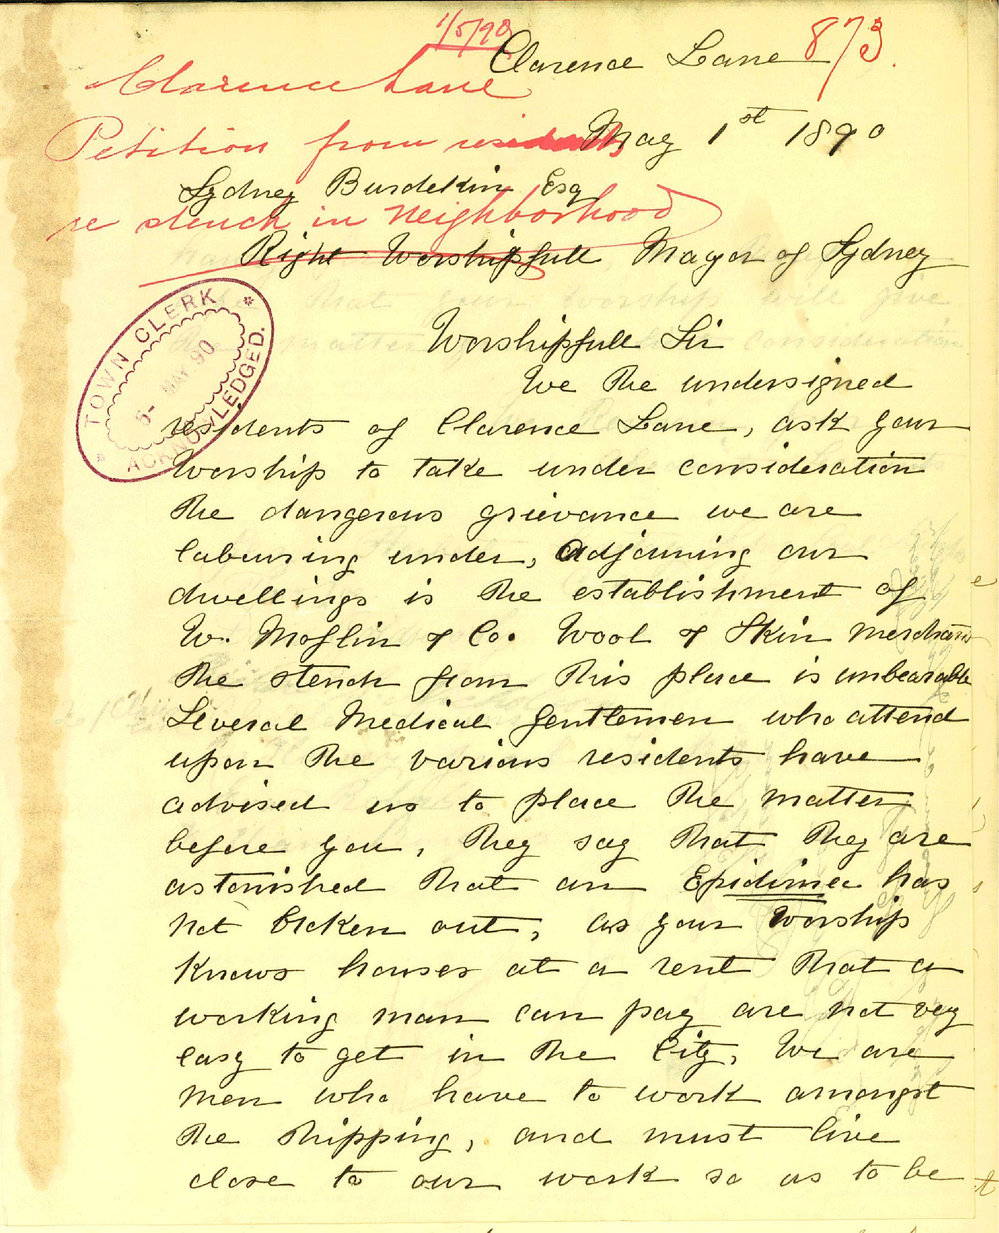 1/5/90
873.
Clarence Lane
Clarence Lane
Petition from residents
May 1st 1890
Sydney Burdekin Esq
re stench in Neighborhood
Right Worshipfull Mayor of Sydney
TOWN CLERK
5- MAY 90
ACKNOWLEDGED.
Worshipfull Sir
We the undersigned
residents of Clarence Lane, ask your
Worship to take under consideration
the dangerous grievance we are
labouring under, Adjouning our
dwellings is the establishment of
W. Moflin & Co. Wool & Skin merchants
the stench from this place is unbearable
Several Medical gentlemen who attend
upon the various residents have
advised us to place the matter
before you, they say that they are
astonished that an Epidimec has
not broken out, as your Worship
knows houses at a rent that a
working man can pay are not very
easy to get in the City, We are
men who have to work amongst
the shipping, and must live
close to our work so as to be